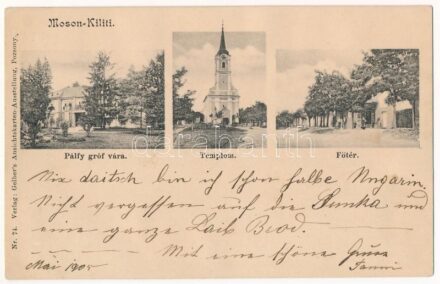 Moson-Kiliti.
Pálfy gróf vára.
Templom.
Főtér.
Nr. 74. Verlag: Geiber's Ansichtskarten-Ausstellung, Pozsony.
darabanth
Nix daitsch bin ich schon halbe Ungarin.
Nicht vergessen auf die Sunka und
eine ganze Laib Brod.
Mit eine schöne Gruss
Mai 190 Fanni